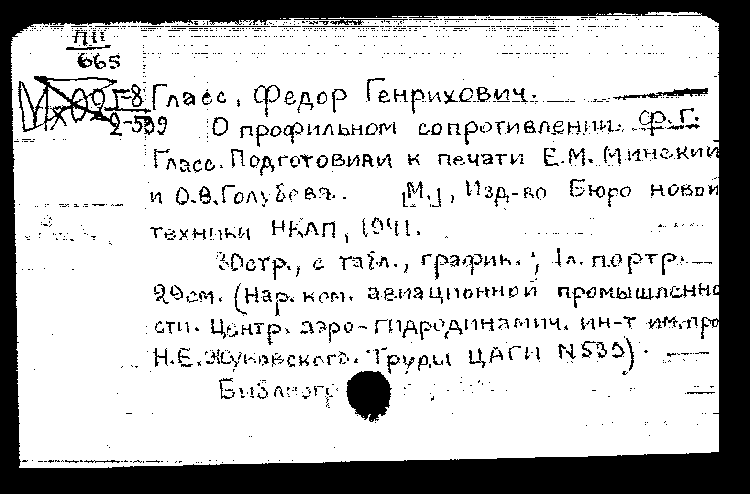 П11
665
Г-8
2-539
Гласс, Федор Генрихович.
О профильном сопротивлении. Ф.Г.
Гласс. Подготовили к печати Е.М. Минский
и О.В. Голубева. [М.], Изд-во Бюро новой
техники НКАП, 1941.
30стр., с табл., график.; 1л. портр.
29см. (Нар. ком. авиационной промышленно
сти. Центр. аэро-гидродинамич. ин-т им. про
Н.Е. Жуковского. Труды ЦАГИ N539).
Библиогр